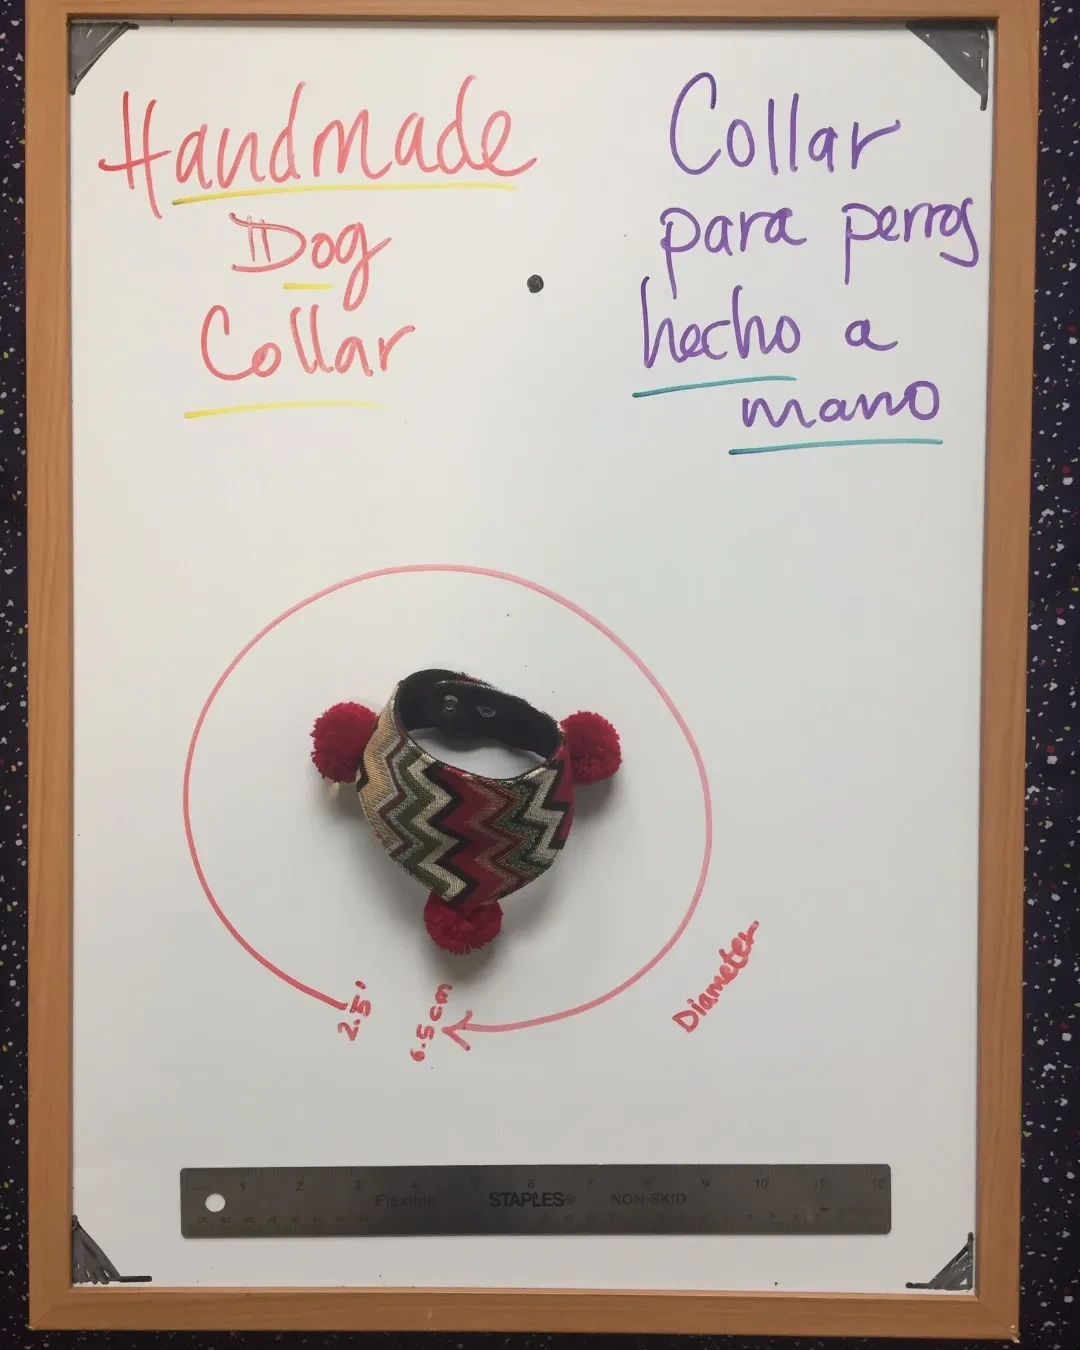 Handmade
Dog
Collar
Collar
para perros
hecho a
mano
2.5'
6.5cm
Diameter
1 2 3 4 5 6 7 8 9 10 11 12
Flexible STAPLES® NON-SKID